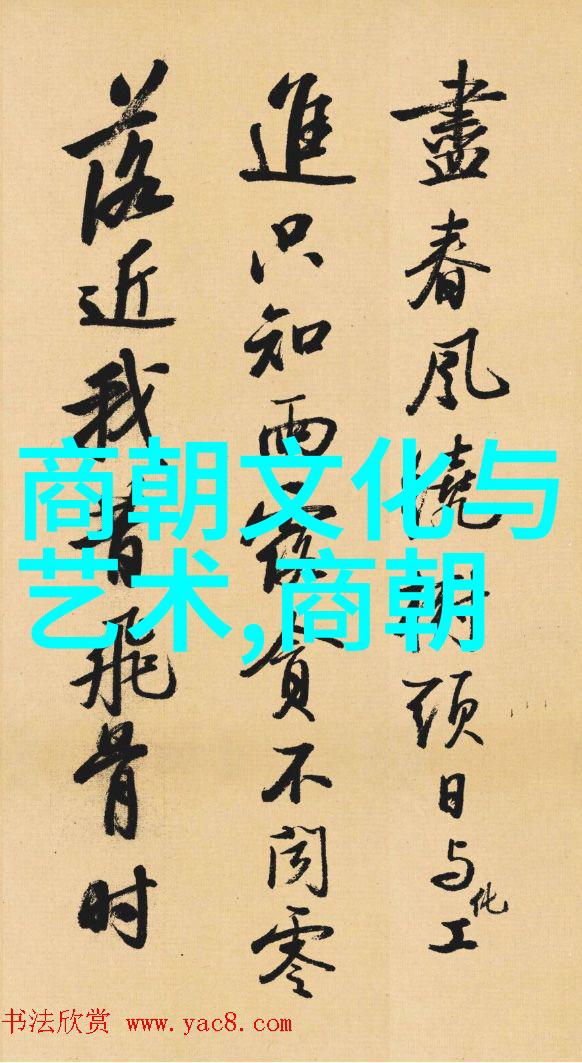 盡春風繞樹頭日与化工
進只知雨露貪不聞零
落近我昔飛骨时
商朝文化与
艺术,商朝
书法欣赏 www.yac8.com